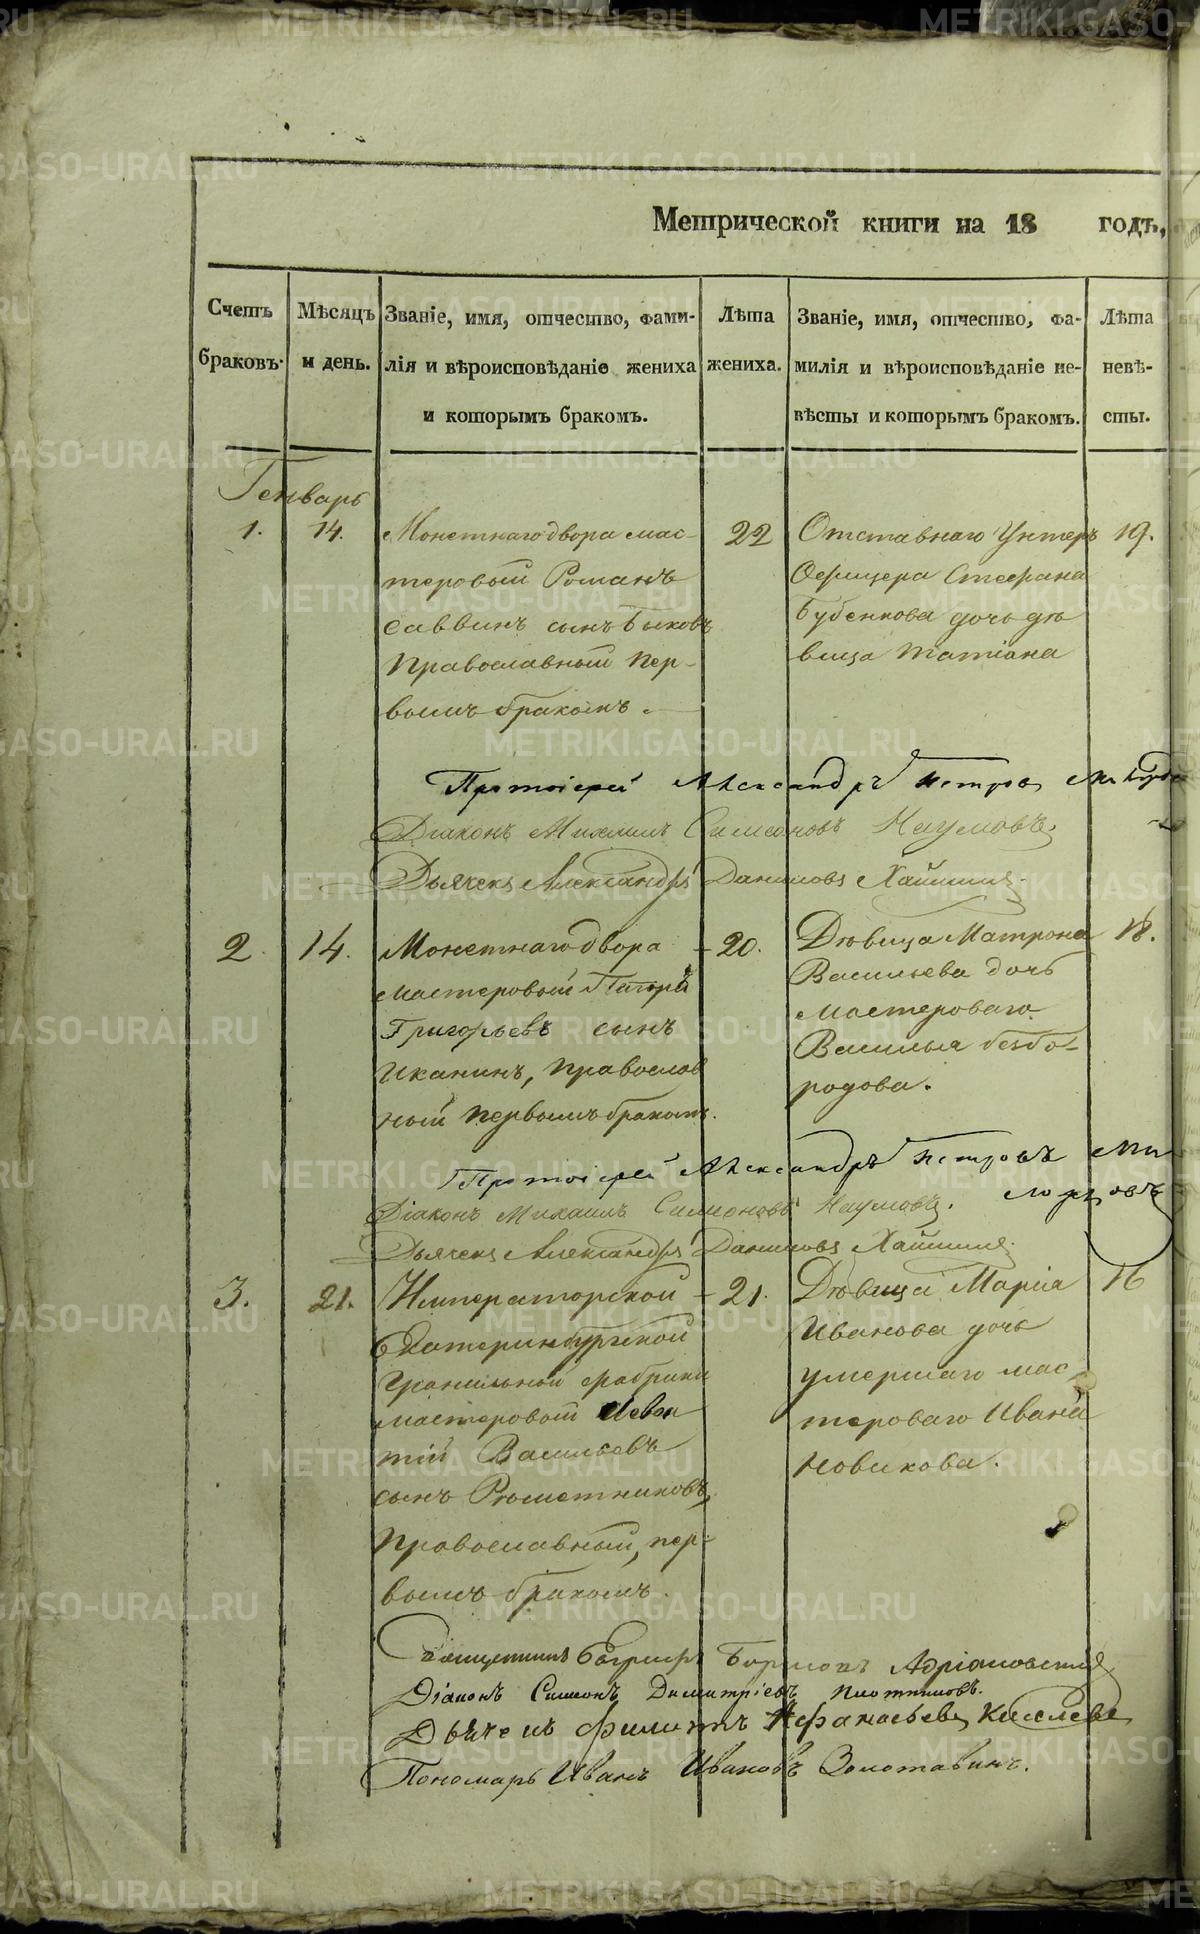 METRIKI.GASO-URAL.RU
Метрической книги на 18 годъ,
Счетъ браковъ.
Мѣсяцъ и день.
Званіе, имя, отчество, фами-
лія и вѣроисповѣданіе жениха
и которымъ бракомъ.
Лѣта жениха.
Званіе, имя, отчество, фа-
милія и вѣроисповѣданіе не-
вѣсты и которымъ бракомъ.
Лѣта невѣ-
сты.
Генварь
1. 14.
Монетнаго двора мас-
теровый Романъ
Саввинъ сынъ Быковъ
Православный пер-
вымъ бракомъ.
22
Отставнаго Унтеръ
Офицера Стефана
Бубенкова дочь дѣ
вица Татіана
19.
Протоіерей Александръ Петровъ
Діаконъ Михаилъ Симеоновъ Наумовъ.
Дьячекъ Александръ Даниловъ
2. 14.
Монетнаго двора
мастеровый
Григорьевъ сынъ
Иканинъ, Православ
ный первымъ бракомъ.
20.
Дѣвица Матрона
Васильева дочь
мастероваго
Василья Безбо-
родова.
18.
Протоіерей Александръ Петровъ
Діаконъ Михаилъ Симеоновъ Наумовъ.
Дьячекъ Александръ Даниловъ
3. 21.
Императорской
Екатеринбургской
Гранильной фабрики
мастеровой
тій Васильевъ
сынъ Рѣшетниковъ,
Православный, пер-
вымъ бракомъ.
21.
Дѣвица Марія
Иванова дочь
умершаго мас
тероваго Ивана
Новикова.
16
Священникъ Борисовъ Адріановскій
Діаконъ Симеонъ Димитріевъ Плотниковъ.
Дьячекъ Филиппъ Афанасьевъ Киселевъ
Пономарь Иванъ Ивановъ Золотавинъ.